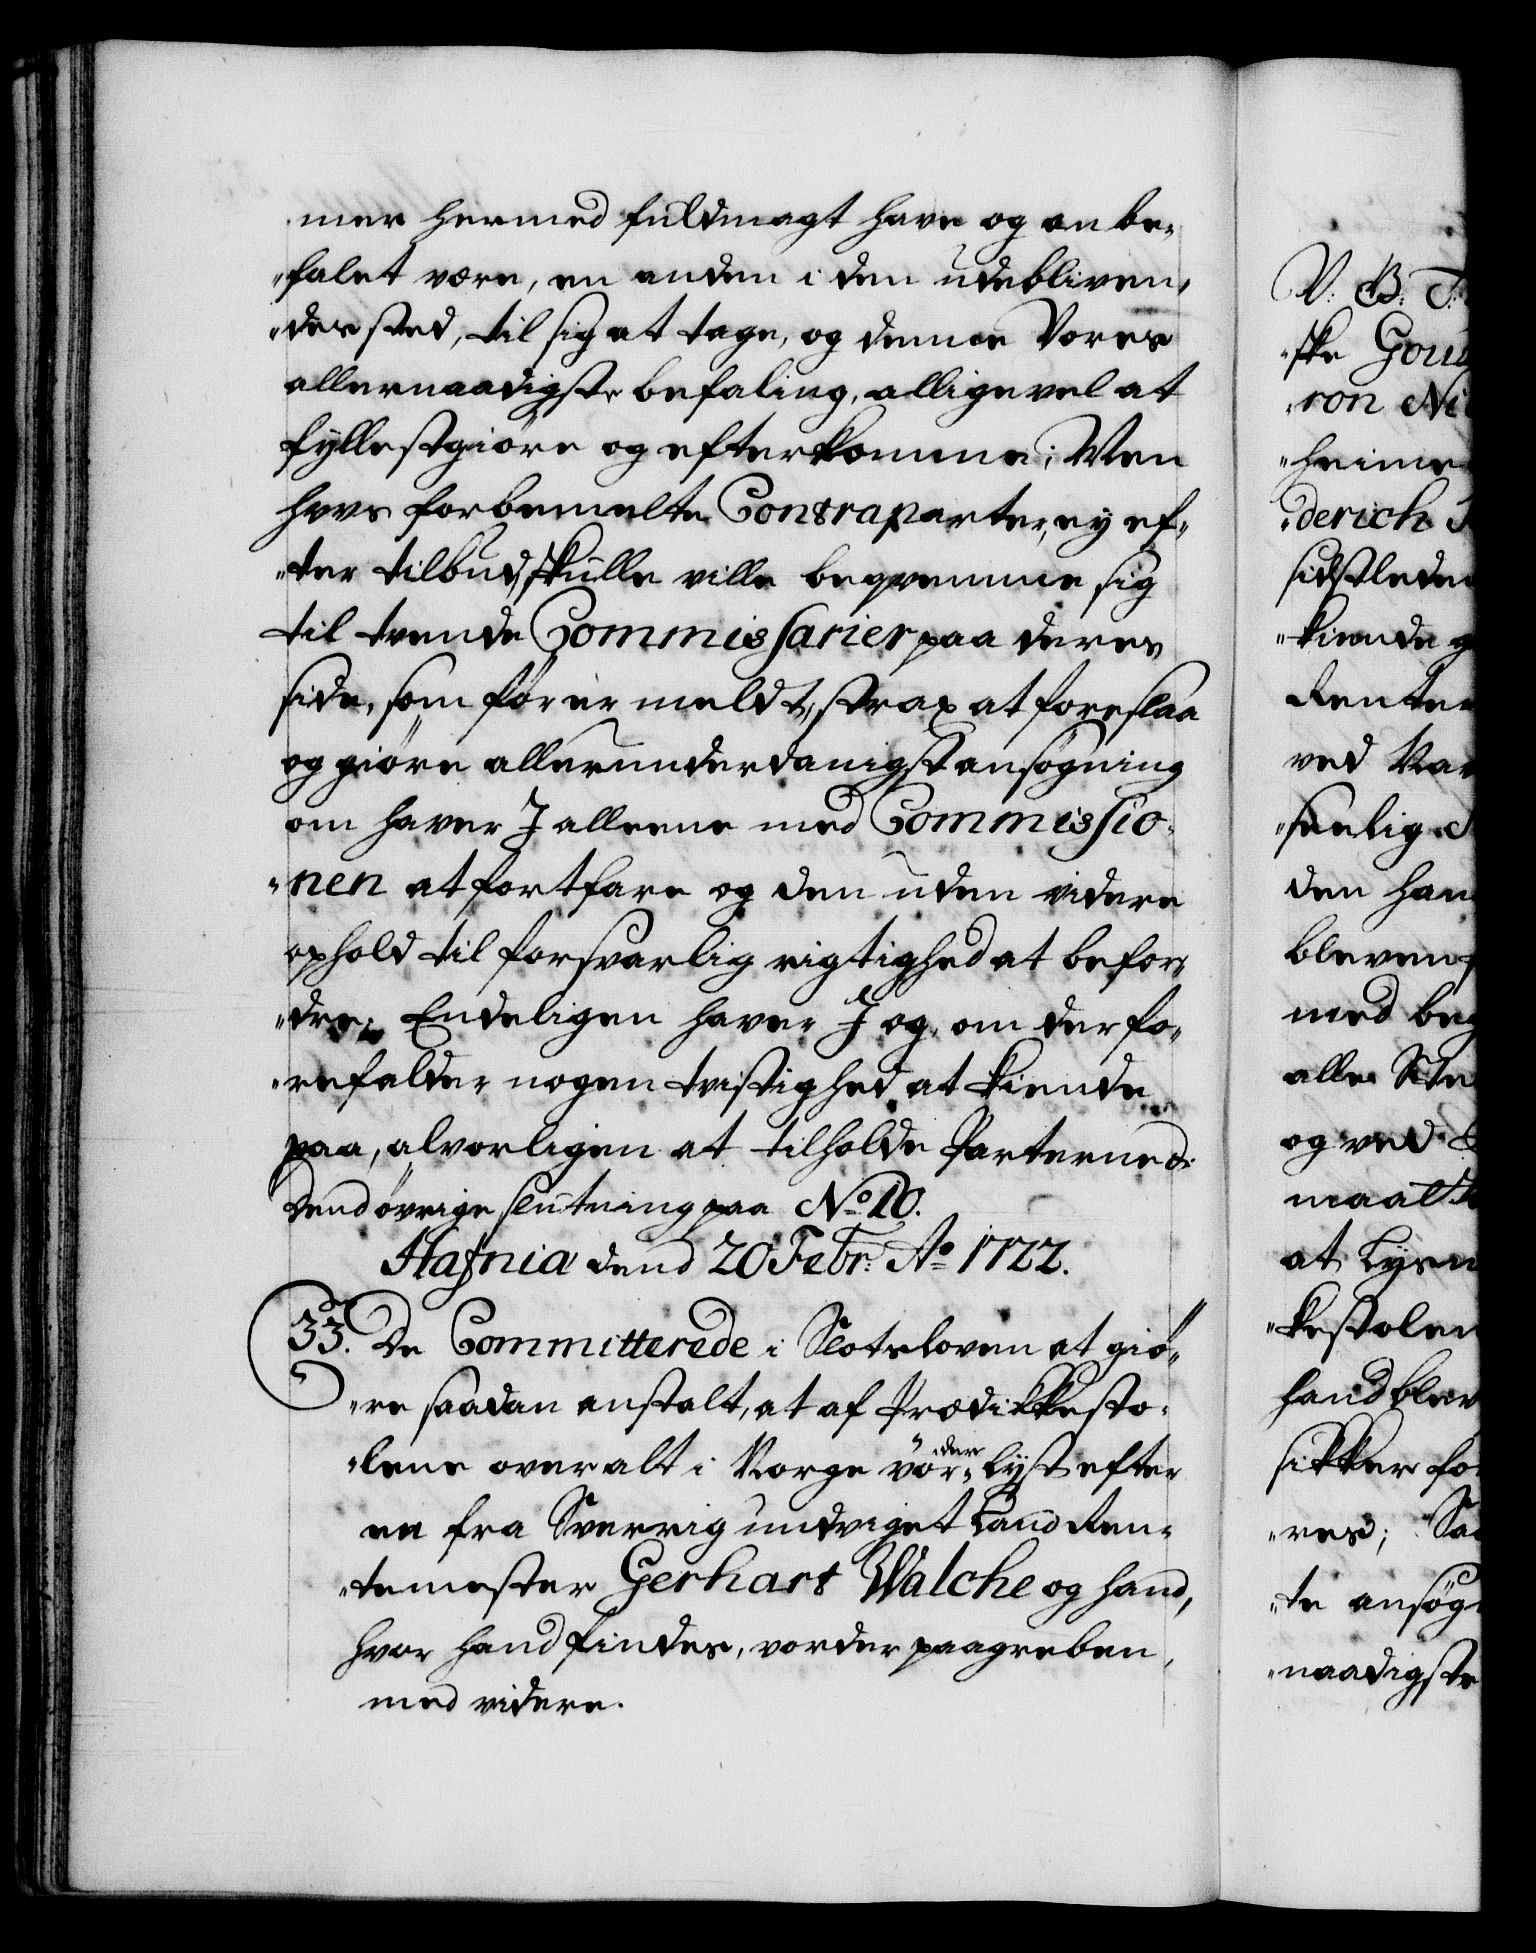 mer hermed fuldmagt have og anbe¬
"falet være, en anden i den udebliven¬
"des sted, til sig at tage, og denne Vores
allernaadigste befaling, alligevel at
fyllestgiøre og efterkomme; Men
hvis forbemelte Contraparter, ey ef¬
"ter tilbud, skulle ville beqvemme sig
til tvende Commissarier paa deres
side, som før er meldt, strax at foreslaa
og giøre allerunderdanigst ansøgning
om haver I alleene med Commissio¬
"nen at fortfare og den uden videre
ophold til forsvarlig rigtighed at befor¬
"dre; Endeligen haver I og, om der fo¬
"refalder nogen tvistighed at kiende
paa, alvorligen at tilholde Parterne &:
dend øvrige slutning paa No 10.
Hafnia dend 20 Febr: Ao 1722.
33. De Committerede i Slotsloven at giø¬
"re saadan anstalt, at af Prædikkesto¬
"lene overalt i Norge vor¬der lyst efter
en fra Sverrig undviget Land Ren¬
"temester Gerhart Walche og hand,
hvor hand findes, vorder paagreben,
med videre.
V: B: T:
"ske Gou
"ron Ni
"heime
"derich
sidstleden
"kiende
Renter
ved Nar
"seelig
den han
bleven
med beg
alle Ste
og ved
maatte
at Lysn
"kestolen
hand blev
sikker for
"res; Saa
"te ansøg
"naadigste